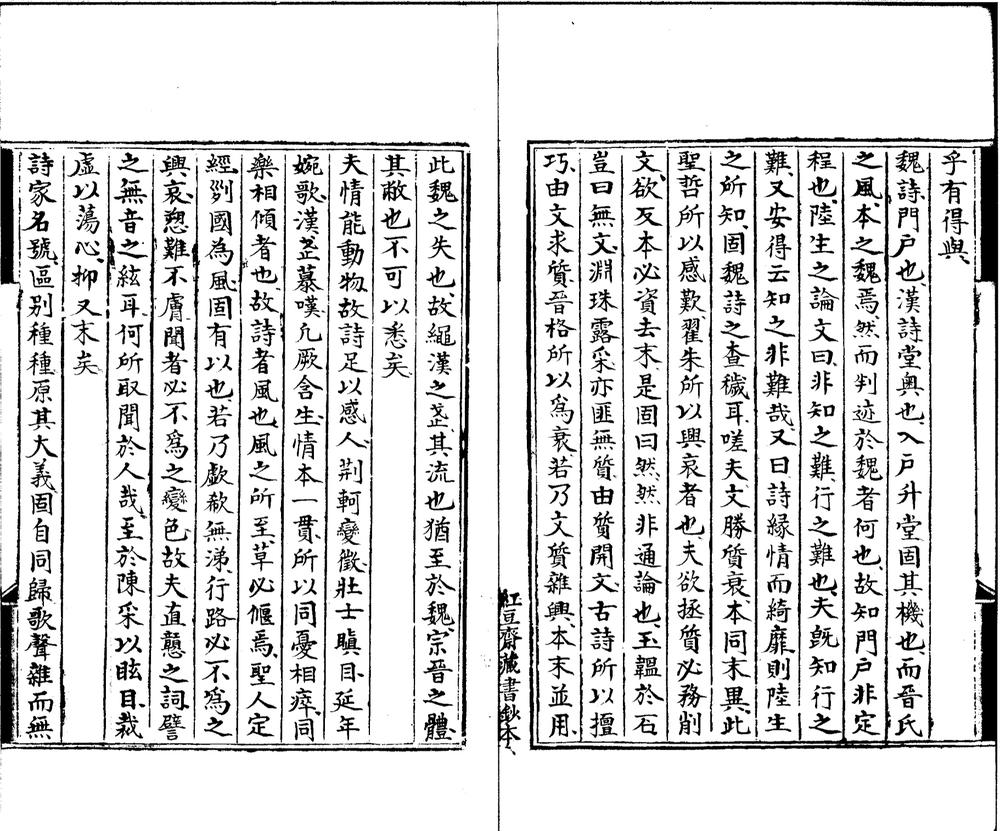 乎有得與
魏詩門戶也漢詩堂奧也入戶升堂固其機也而晉氏
之風本之魏焉然而判迹於魏者何也故知門戶非定
程也陸生之論文曰非知之難行之難也夫旣知行之
難又安得云知之非難哉又曰詩緣情而綺靡則陸生
之所知固魏詩之查穢耳嗟夫文勝質衰本同末異此
聖哲所以感歎翟朱所以興哀者也夫欲拯質必務削
文欲反本必資去末是固曰然然非通論也玉韞於石
豈曰無文淵珠露采亦匪無質由質開文古詩所以擅
巧由文求質晉格所以為衰若乃文質雜興本末並用
此魏之失也故繩漢之武其流也猶至於魏宗晉之體
其敝也不可以悉矣
夫情能動物故詩足以感人荆軻變徵壯士瞋目延年
婉歌漢武慕嘆凡厥含生情本一貫所以同憂相瘁同
樂相傾者也故詩者風也風之所至草必偃焉聖人定
經列國為風固有以也若乃歔欷無涕行路必不為之
興哀愬難不膚聞者必不為之變色故夫直戇之詞譬
之無音之絃耳何所取聞於人哉至於陳采以眩目裁
虛以蕩心抑又末矣
詩家名號區別種種原其大義固自同歸歌聲雜而無
紅豆齋藏書鈔本